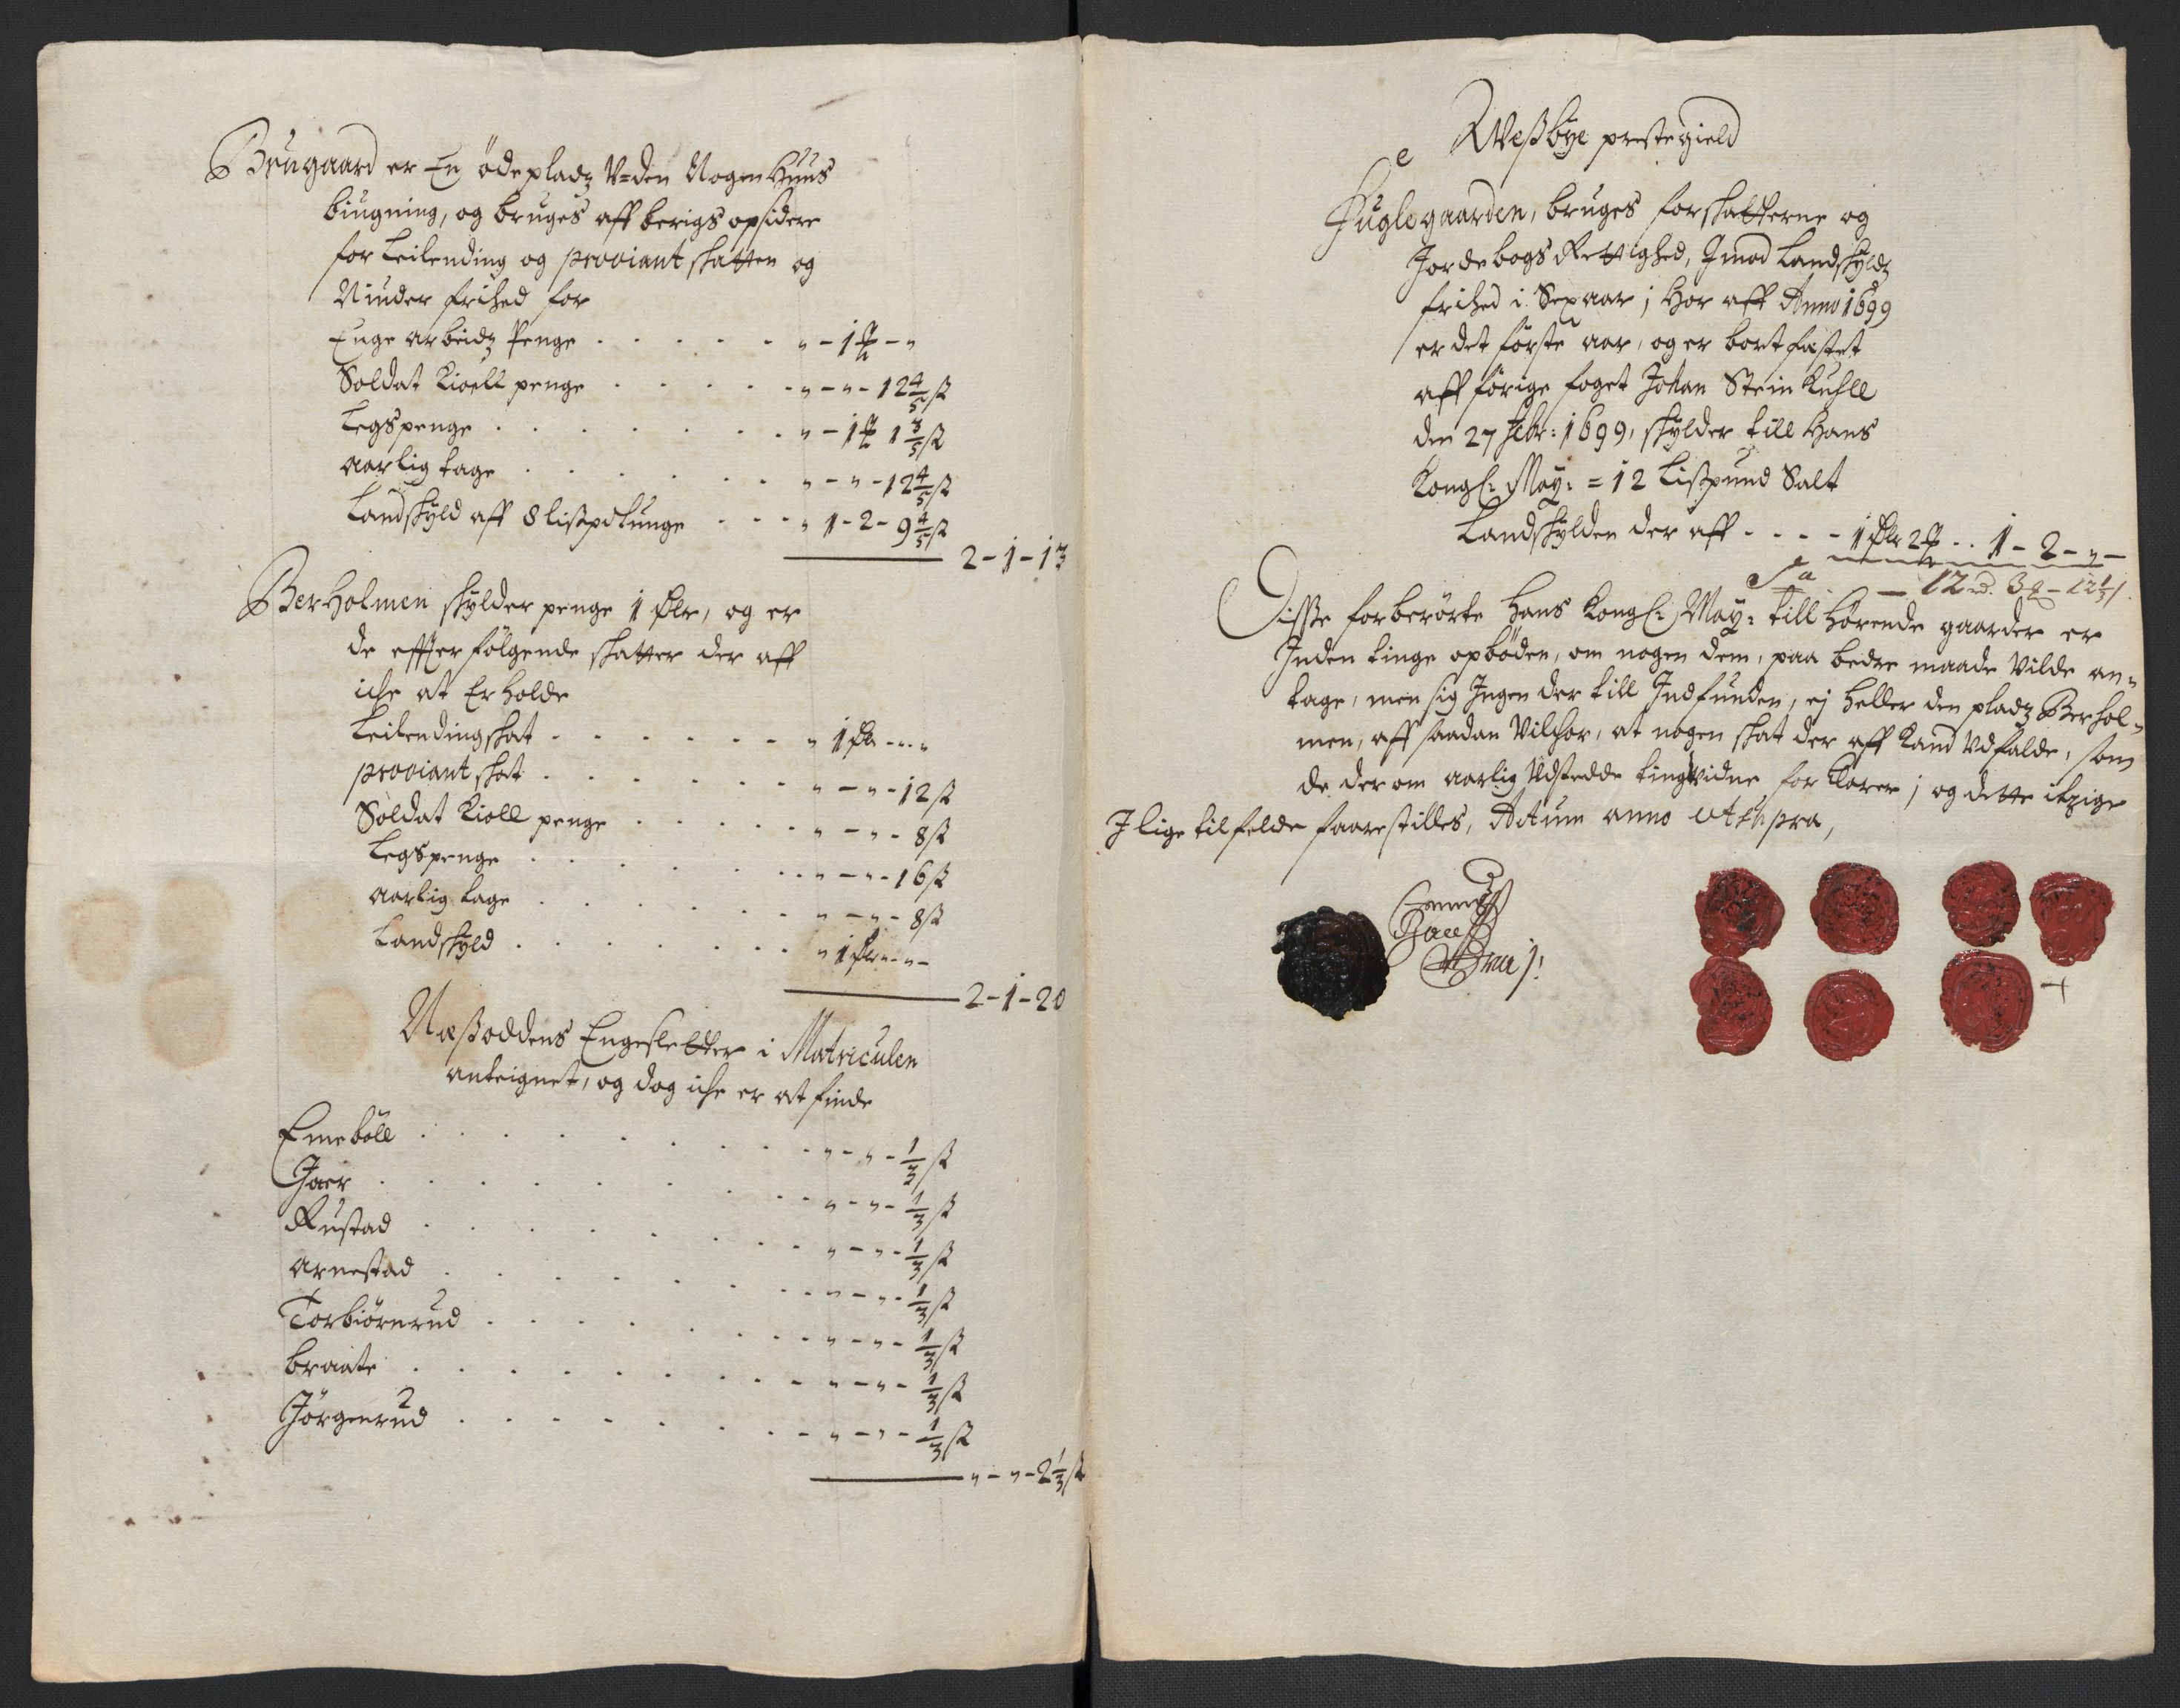 Brugaard er En ödepladz V=den Nogen Huus
biugning, og bruges aff berigs opsidere
for Leilending og proviant skatten og
Niuder frihed for
Enge arbeidz Penge . . . . . „ - 1 ort - „
Soldat Kioell penge . . . . „ - „ - 12 4/5 ß
Legspenge . . . . . . „ - 1 ort 1 3/5 ß
Aarlig tage . . . . . . „ - „ - 12 4/5 ß
Landskyld aff 8 lißpd tunge . . . „ 1 - 2 - 9 4/5 ß
2 - 1 - 13
Berholmen skylder penge 1 Rdlr, og er
de effterfölgende skatter der aff
iche at Erholde
Leilendingskat . . . . . . „ 1 Rdlr - „ - „
proviant skat . . . . . . „ - „ - 12 ß
Soldat Kioll penge . . . . . „ - „ - 8 ß
Legspenge . . . . . . . „ - „ - 16 ß
Aarlig tage . . . . . . „ - „ - 8 ß
Landskyld . . . . . . . „ 1 Rdlr - „ - „
2 - 1 - 20
Næßoddens Engesletter i Matriculen
anteignet, og dog iche er at finde
Emeböll . . . . . . . . „ - „ - 1/3 ß
Gaer . . . . . . . . „ - „ - 1/3 ß
Rustad . . . . . . . . „ - „ - 1/3 ß
Arnestad . . . . . . . „ - „ - 1/3 ß
Torbiörnrud . . . . . . . „ - „ - 1/3 ß
Braate . . . . . . . . „ - „ - 1/3 ß
Jörgenrud . . . . . . . „ - „ - 1/3 ß
„ - „ - 2 1/3 ß
Weßbye prestegield
Fuglegaarden, bruges for skatterne og
Jordebogs Rettighed, Imod Landskyldz
frihed i Sex aar; Hor aff Anno 1699
er det förste aar, og er bortfæstet
aff forige foget Johan Stein Kuhll
den 27 Febr: 1699, skylder till Hans
Kongl: May: = 12 Lißpund Salt
Landskylden der aff . . . - 1 Rdlr 2 ort . . 1 - 2 - „ -
Sa - 12 rd. 3 ort - 12 1/3 ß.
Disse forberörte Hans Kongl: May: till hörende gaarder er
Inden tinge opböden, om nogen dem, paa bedre maade Vilde an=
tage, men sig Ingen der till Indfunden, ej heller den pladz Berhol=
men, aff saadan Vilchor, at nogen skat der aff Kand Udfalde, som
de der om aarlig Udstedde tingsvidne forklarer; og dette
I lige tilfelde faarestilles, Actum anno ut supra,